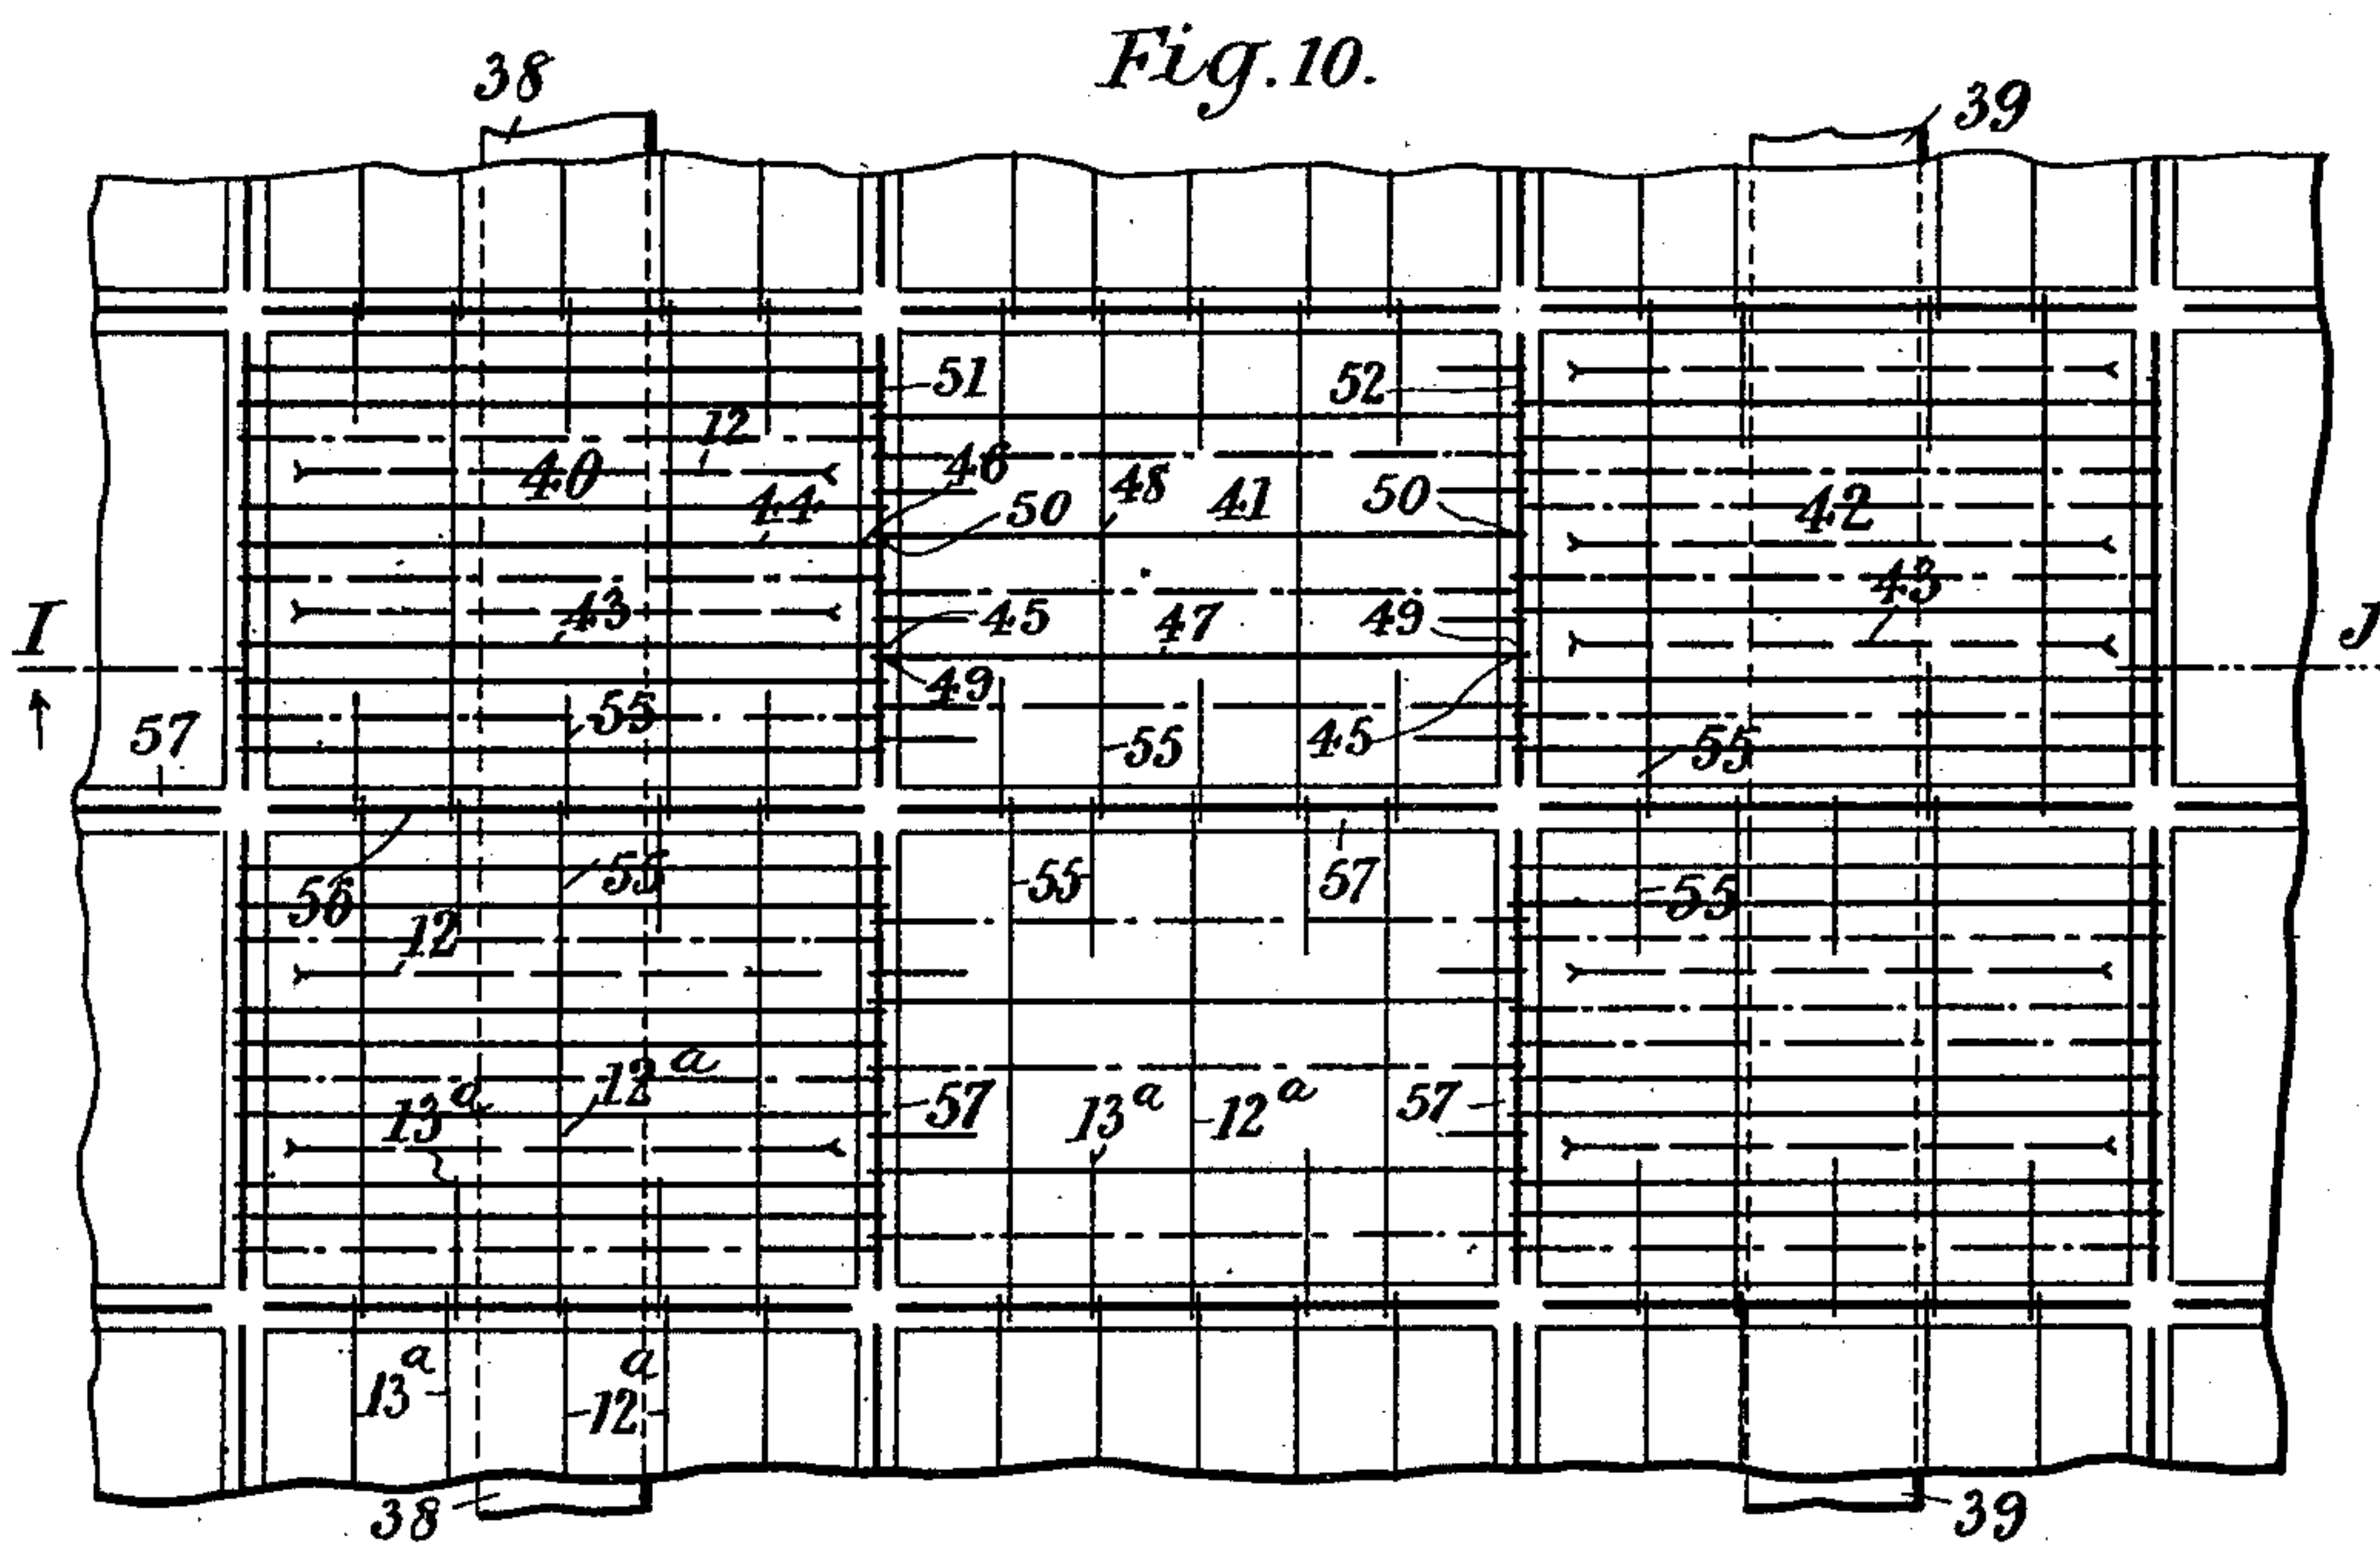 Fig. 10.
38 39
51 52
12
40 46 48 41 50 42
44 50
43 45 47 49 43
I J
49
57 55 55 45 55
56 55 55 57 55
12
12a
13a 57 13a 12a 57
13a 12a
38 39